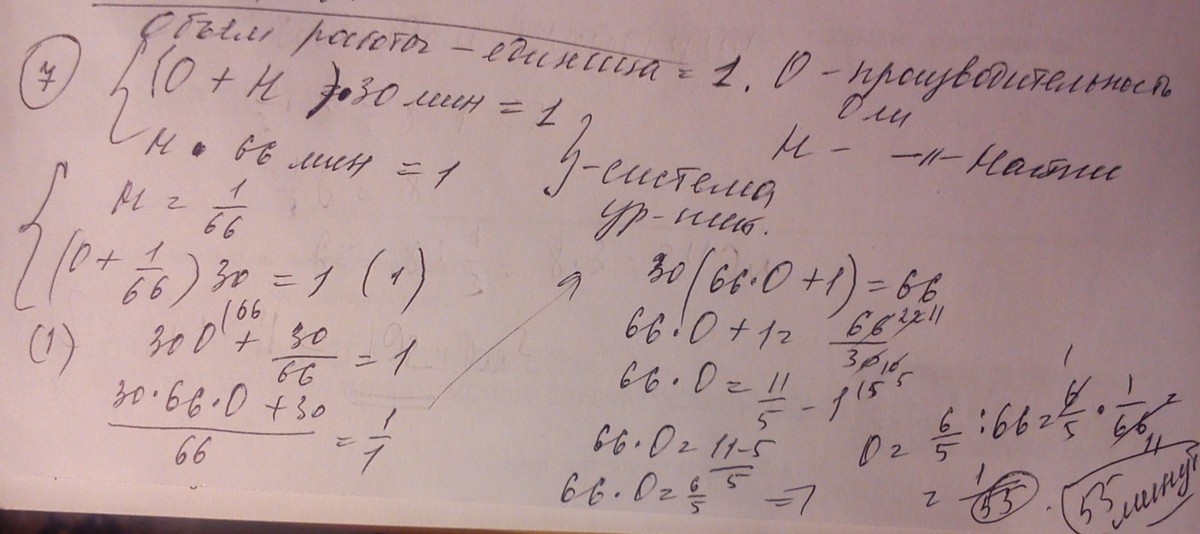 Объём работы – единица = 1. О – производительность
Оли
7
{ (О + Н) · 30 мин = 1
Н – –"– Насти
Н · 66 мин = 1
} – система
ур-ний.
{ Н = 1/66
(О + 1/66) 30 = 1 (1)
(1) 30О + 30/66 = 1
(30·66·О + 30)/66 = 1/1
30(66·О + 1) = 66
66·О + 1 = 66/30
66·О = 11/5 – 1
66·О = (11–5)/5
66·О = 6/5 =>
О = 6/5 : 66 = 6/5 · 1/66 =
= 1/55 . 55 минут